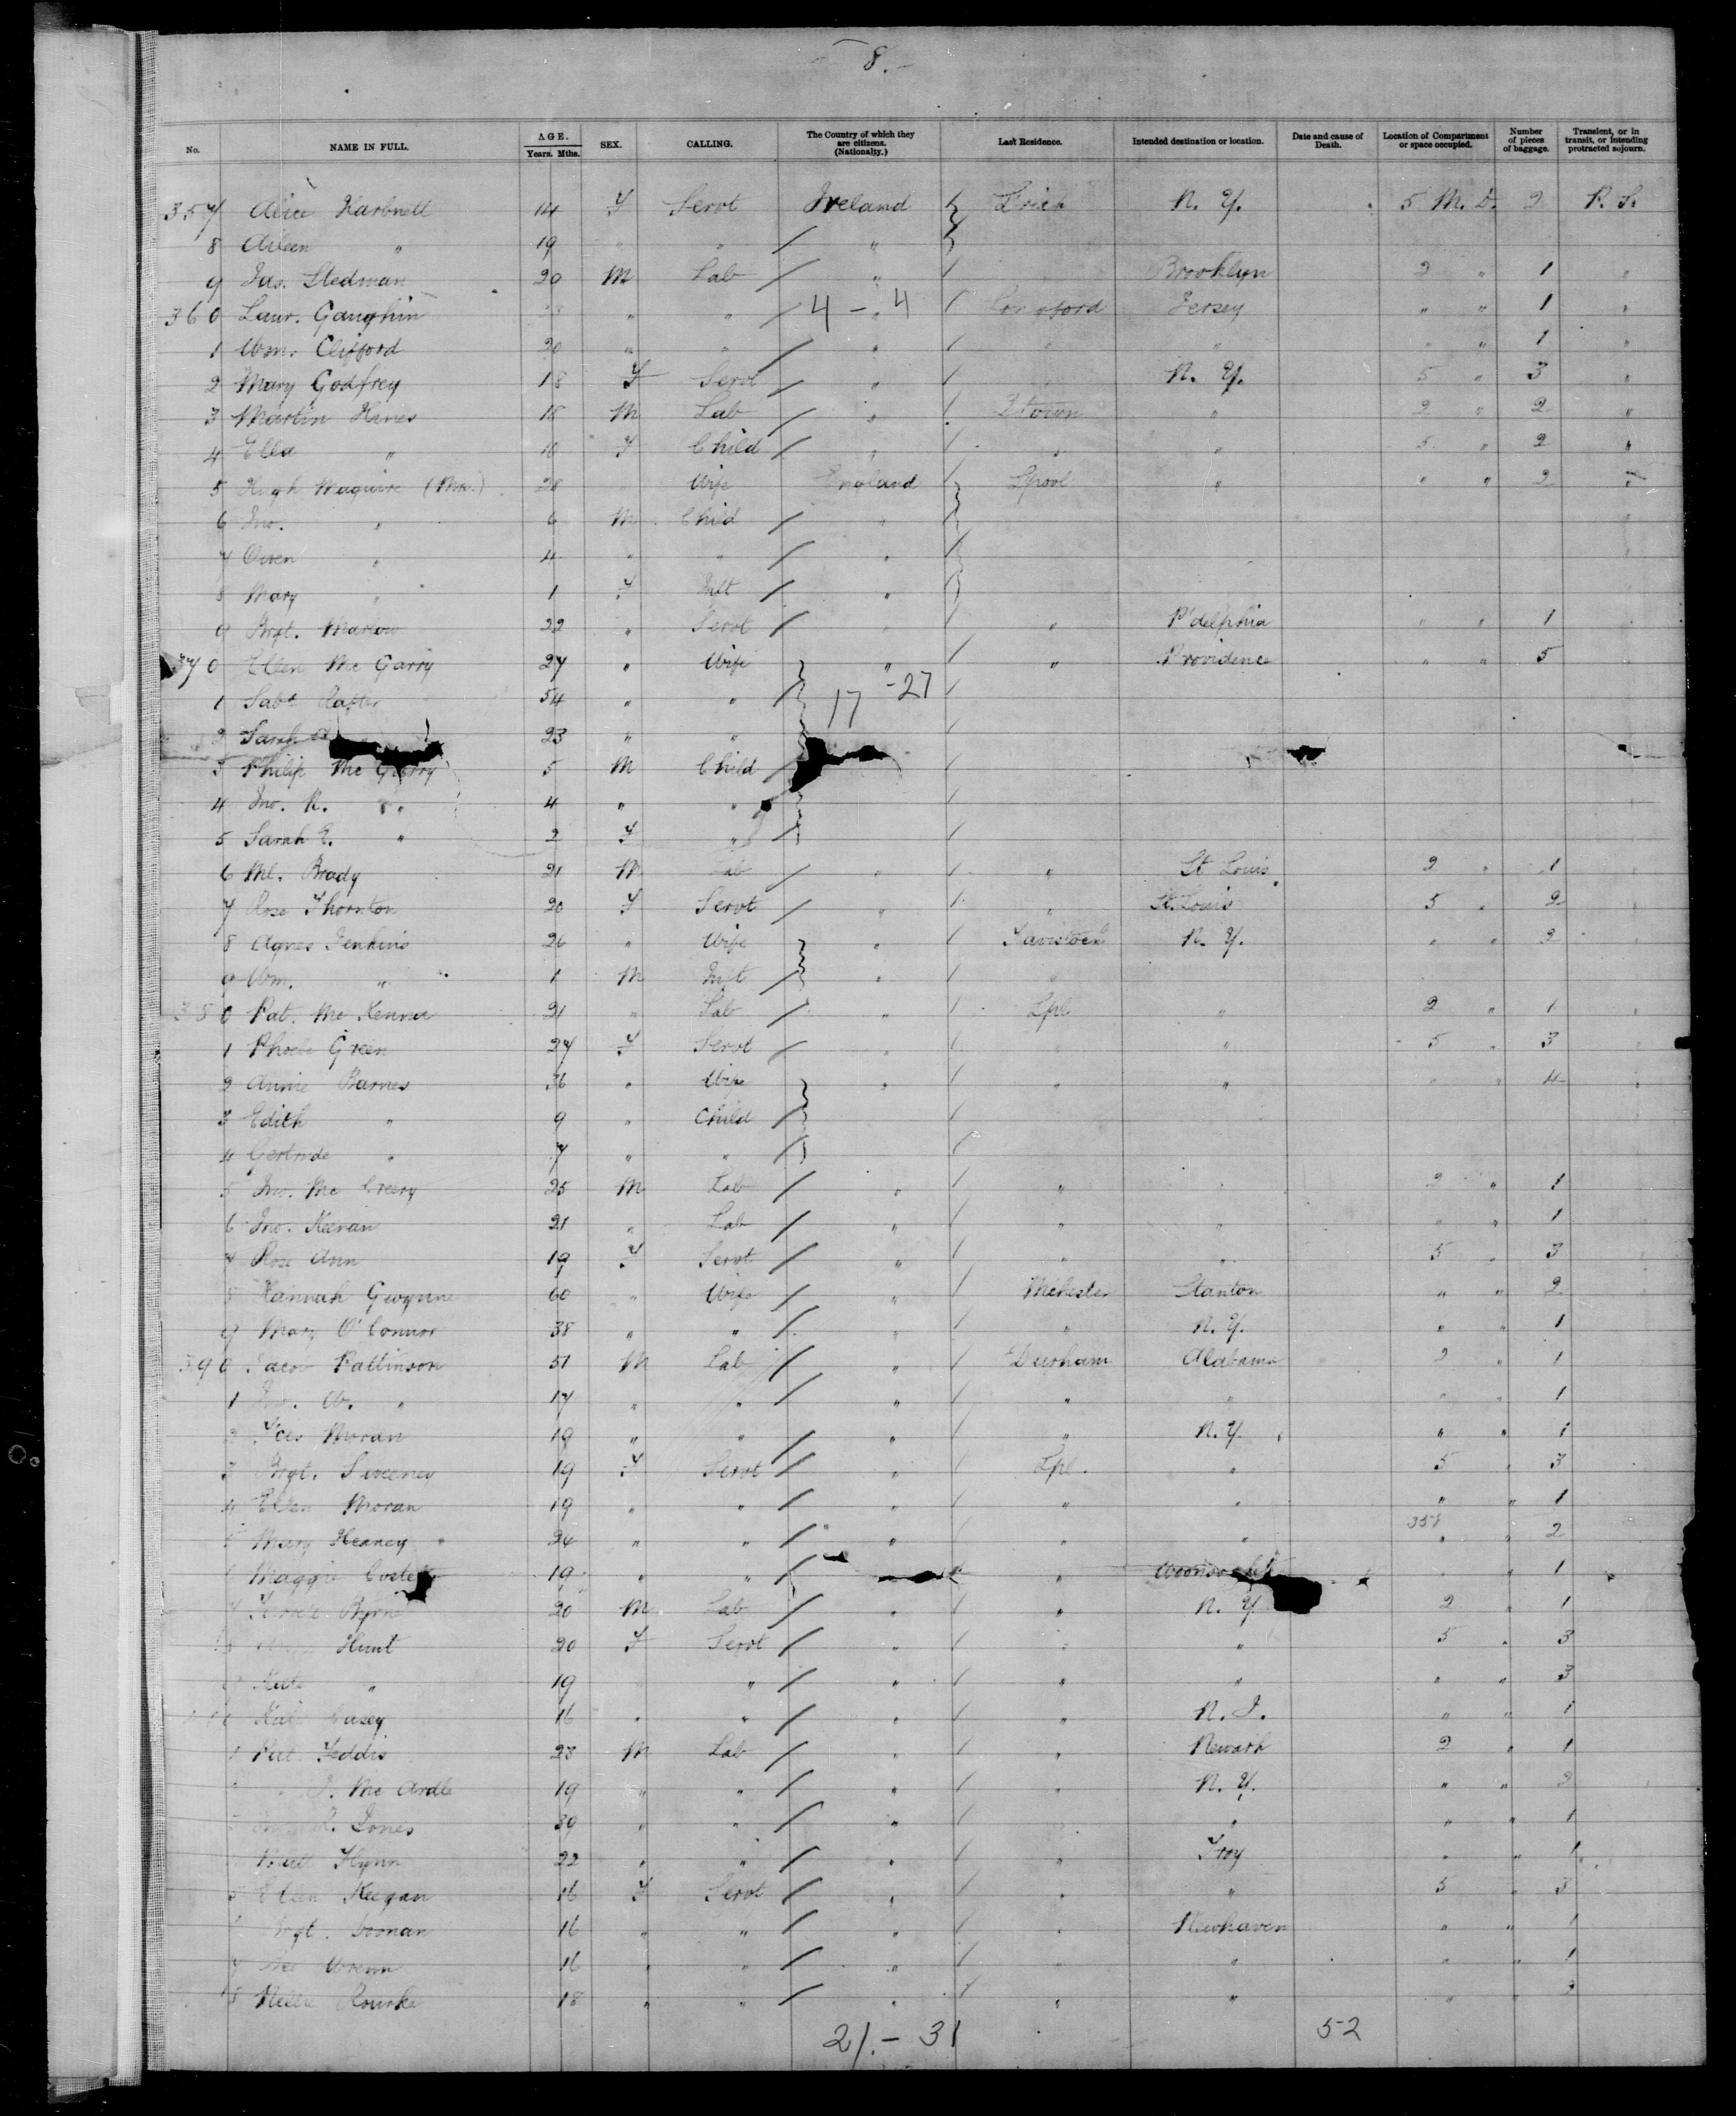 - 8. -
No. NAME IN FULL. AGE. Years. Mths. SEX. CALLING. The Country of which they are citizens. (Nationality.) Last Residence. Intended destination or location. Date and cause of Death. Location of Compartment or space occupied. Number of pieces of baggage. Transient, or in transit, or intending protracted sojourn.
357 Alice Harbnett 14 F Servt Ireland N. Y. 5 M. D. 2 P. S.
8 Aileen " 19 " " "
9 Jas. Stedman 20 M Lab " Brooklyn 2 " 1 "
360 Laur. Gaughin " " 4 - 4 Longford Jersey " " 1 "
1 Wm. Clifford 20 " " " " " " " 1 "
2 Mary Godfrey 18 F Servt " N. Y. 5 " 3 "
3 Martin Hines 18 M Lab " " 2 " 2 "
4 Ella " 10 F Child " " " 5 " 2 "
5 Hugh Maguire (Mrs.) 28 Wife England Lpool " " " 2 "
6 Jno. " 6 M Child "
7 Owen " 4 " " "
8 Mary " 1 F Inft "
9 Brgt. Marlow 22 " Servt " " P'delphia " " 1
370 Ellen Mc Garry 27 " Wife " " Providence " " 5
1 Sabt 54 " " 17 - 27
2 Sarah 23 " "
3 Philip Mc Garry 5 M Child
4 Jno. R. " 4 " "
5 Sarah E. " 2 F "
6 Ml. Brady 21 M Lab " " St Louis 2 " 1
7 Rose Thornton 20 F Servt " " St. Louis 5 " 2
8 Agnes Jenkins 26 " Wife " Tavistock N. Y. " " 2
9 Wm. " 1 M Inft " "
380 Pat. Mc Kenna 21 " Lab " Lpl " 2 " 1
1 Phoebe Green 27 F Servt " " " 5 " 3
2 Annie Barnes 36 " Wife " " " " " 4
3 Edith " 9 " Child
4 Gertrude " 7 " "
5 Jno. Mc Creery 25 M Lab " " " 2 " 1
6 Jno. Keevan 21 " Lab " " " " " 1
7 Rose Ann 19 F Servt " " " 5 " 3
8 Hannah Gwynne 60 " Wife " Mchester Stanton " " 2
9 Mary O'Connor 38 " " " " N. Y. " " 1
390 Jacob Pattinson 51 M Lab " Durham Alabama 2 " 1
1 W. " 17 " " " " " " " 1
2 Fcis Moran 19 " " " " N. Y. " " 1
3 Brgt. Sweeney 19 F Servt " Lpl. " 5 " 3
4 Ellen Moran 19 " " " " " " " 1
5 Mary Heaney 24 " " " " " 358 " 2
6 Maggie Costello 19 " " " Woonsocket " " 1
7 Byrne 20 M Lab " " N. Y. 2 " 1
8 Hunt 20 F Servt " " " 5 " 3
9 Kate " 19 " " " " " " 3
Kate Casey 16 " " " " N. J. " " 1
1 Pat. Feddis 23 M Lab " " Newark 2 " 1
J. Mc Ardle 19 " " " " N. Y. " " 2
R. Jones 39 " " " " " " 1
Flynn 22 " " " " Troy " " 1
5 Ellen Keegan 16 F Servt " " " 5 " 3
Brgt. Noonan 16 " " " " Newhaven " " 1
7 Wrenn 16 " " " " " " " 1
8 Nellie Rourke 18 " " " " " " "
21. - 31 52